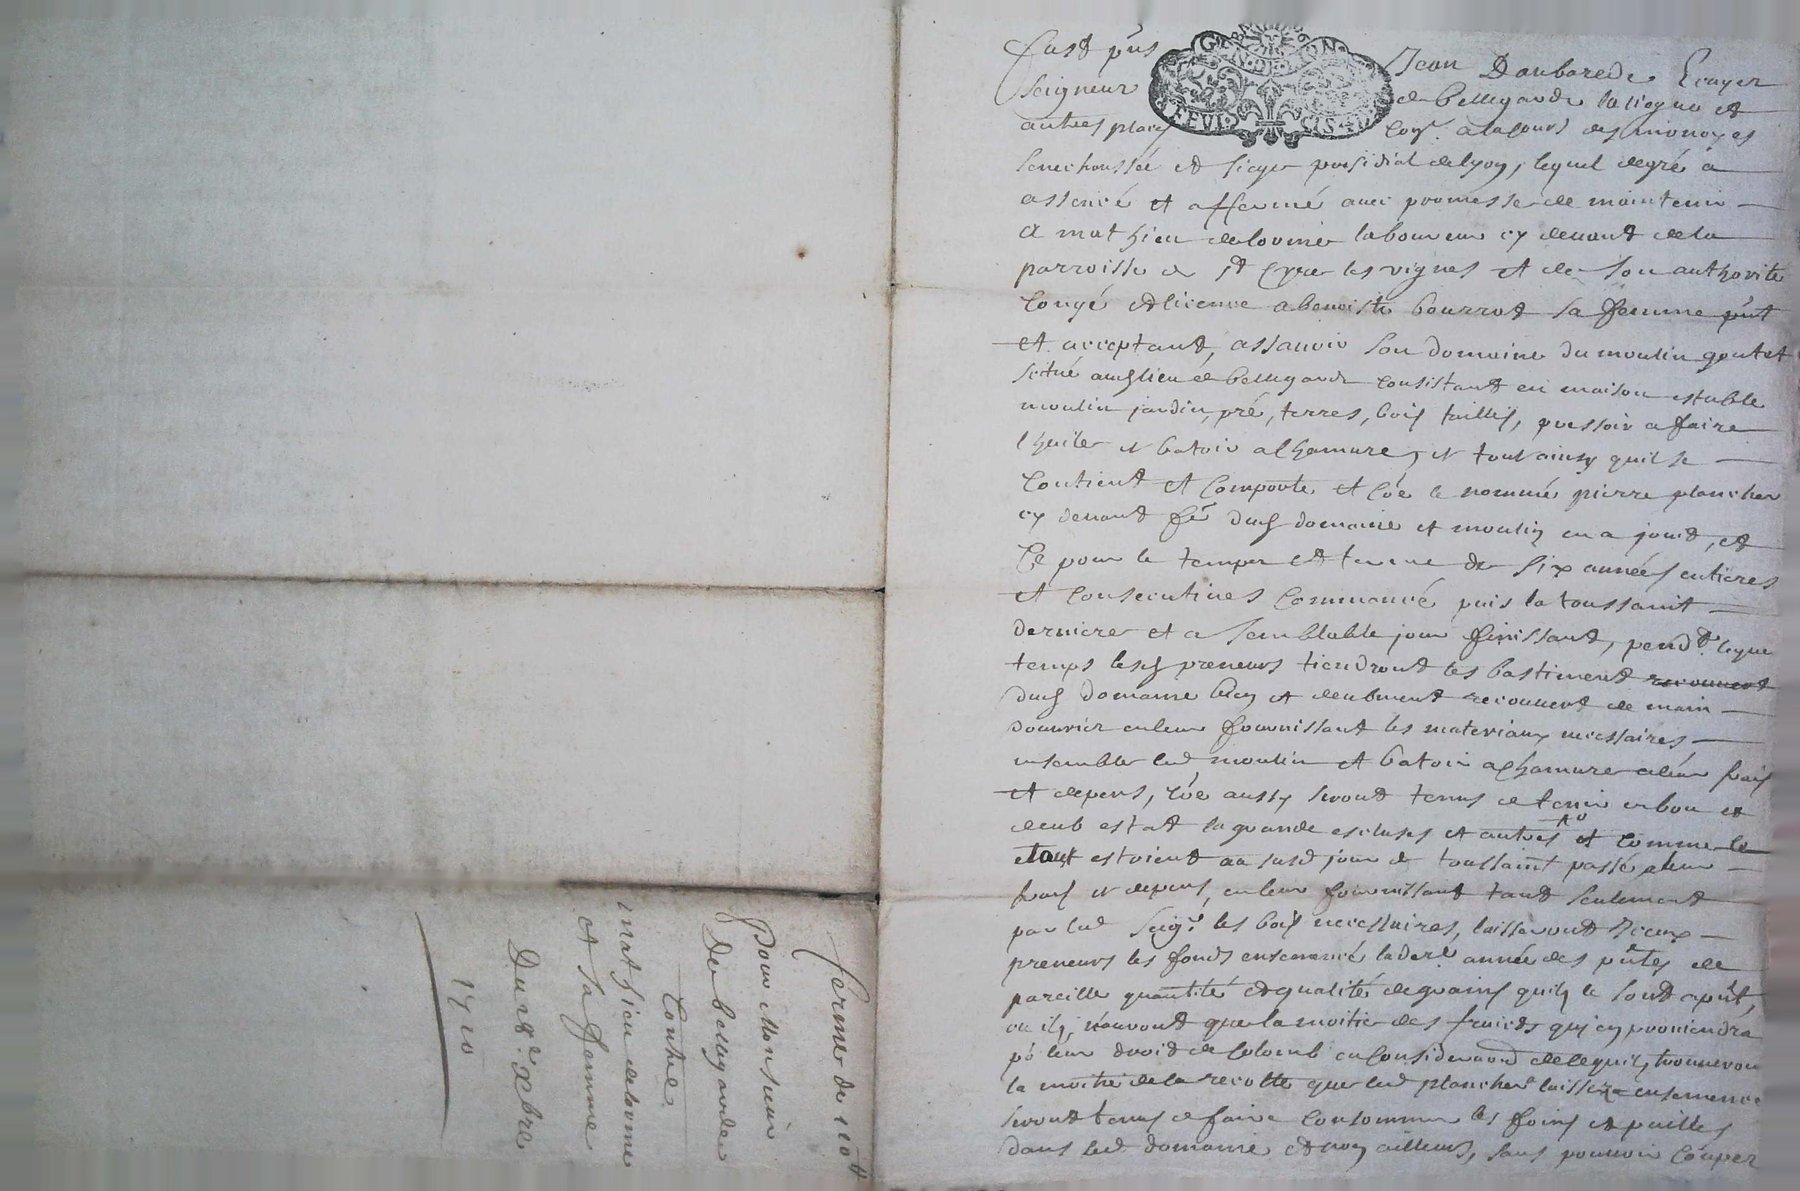 Fust pñs Jean Daubarede Ecuyer
Seigneur de bellegarde la vigne et
autres places Con.r a la cours des monoyes
senechaussée et siege presidial de lyon, lequel degré a
assencé et affermé avec promesse de maintenir
A mathieu delorme laboureur cy devant de la
parroisse de st Cyre les vignes et de son authorité
Congé et licence a benoiste bourrat sa femme pñt
et acceptant, assavoir son domaine du moulin goutet
situé aud lieu de bellegarde Consistant en maison estable
moulin jardin, pré, terres, bois taillis, pressoir a faire
lhuile et batoir a chanvre, et tout ainsy quil se
Contient et Comporte et Côe le nommé pierre plancher
cy devant fer dud domaine et moulin en a jouit, et
Ce pour le temps et terme de six années entieres
et Consecutives Commancé puis la toussaint
derniere et a semblable jour finissant, pend.t leque
temps lesd preneurs tiendront les bastiment recouvert
dud domaine bien et deubment recouvert de main
douvrier en leur fournissant les materiaux necessaires
ensemble led moulin et batoir a chanvre a leur frais
et depens, Côe aussy seront tenus de tenir en bon et
deub estat la grande escluses et autres et Comme le
tout estoient au susd jour de toussaint passé a leur
frais et depens, en leur fournissant tant seulement
par led Seig.r les bois necessaires, laisseront Iceux
preneurs les fonds ensemencé la der.e année des pñtes de
pareille quantité et qualité de grains quils le sont apñt,
ou ils nauront que la moitié des fruicts quj en proviendra
po leur droit de Colomb en Consideraon de ce quils trouveron
la moitié de la recolte que led plancher laissera ensemencé
seront tenus de faire Consommer les foins et pailles
dans led domaine et non ailleurs, sans pouvoir Couper
ferme de 110tt
Pour Monsieur
De bellegarde
Contre
mathieu delorme
et sa femme
Du 28e Xbre
1710
GEN DE LYON